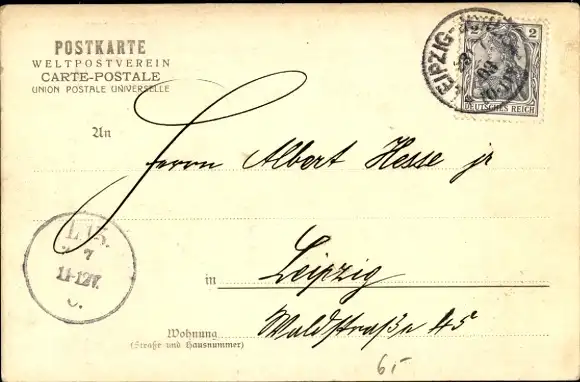 POSTKARTE
WELTPOSTVEREIN
CARTE-POSTALE
UNION POSTALE UNIVERSELLE
LEIPZIG
2 2
DEUTSCHES REICH
An
Herrn Albert Hesse jr
L 13.
7
11-12V.
in Leipzig
Wohnung
(Straße und Hausnummer)
Waldstraße 45
6,-